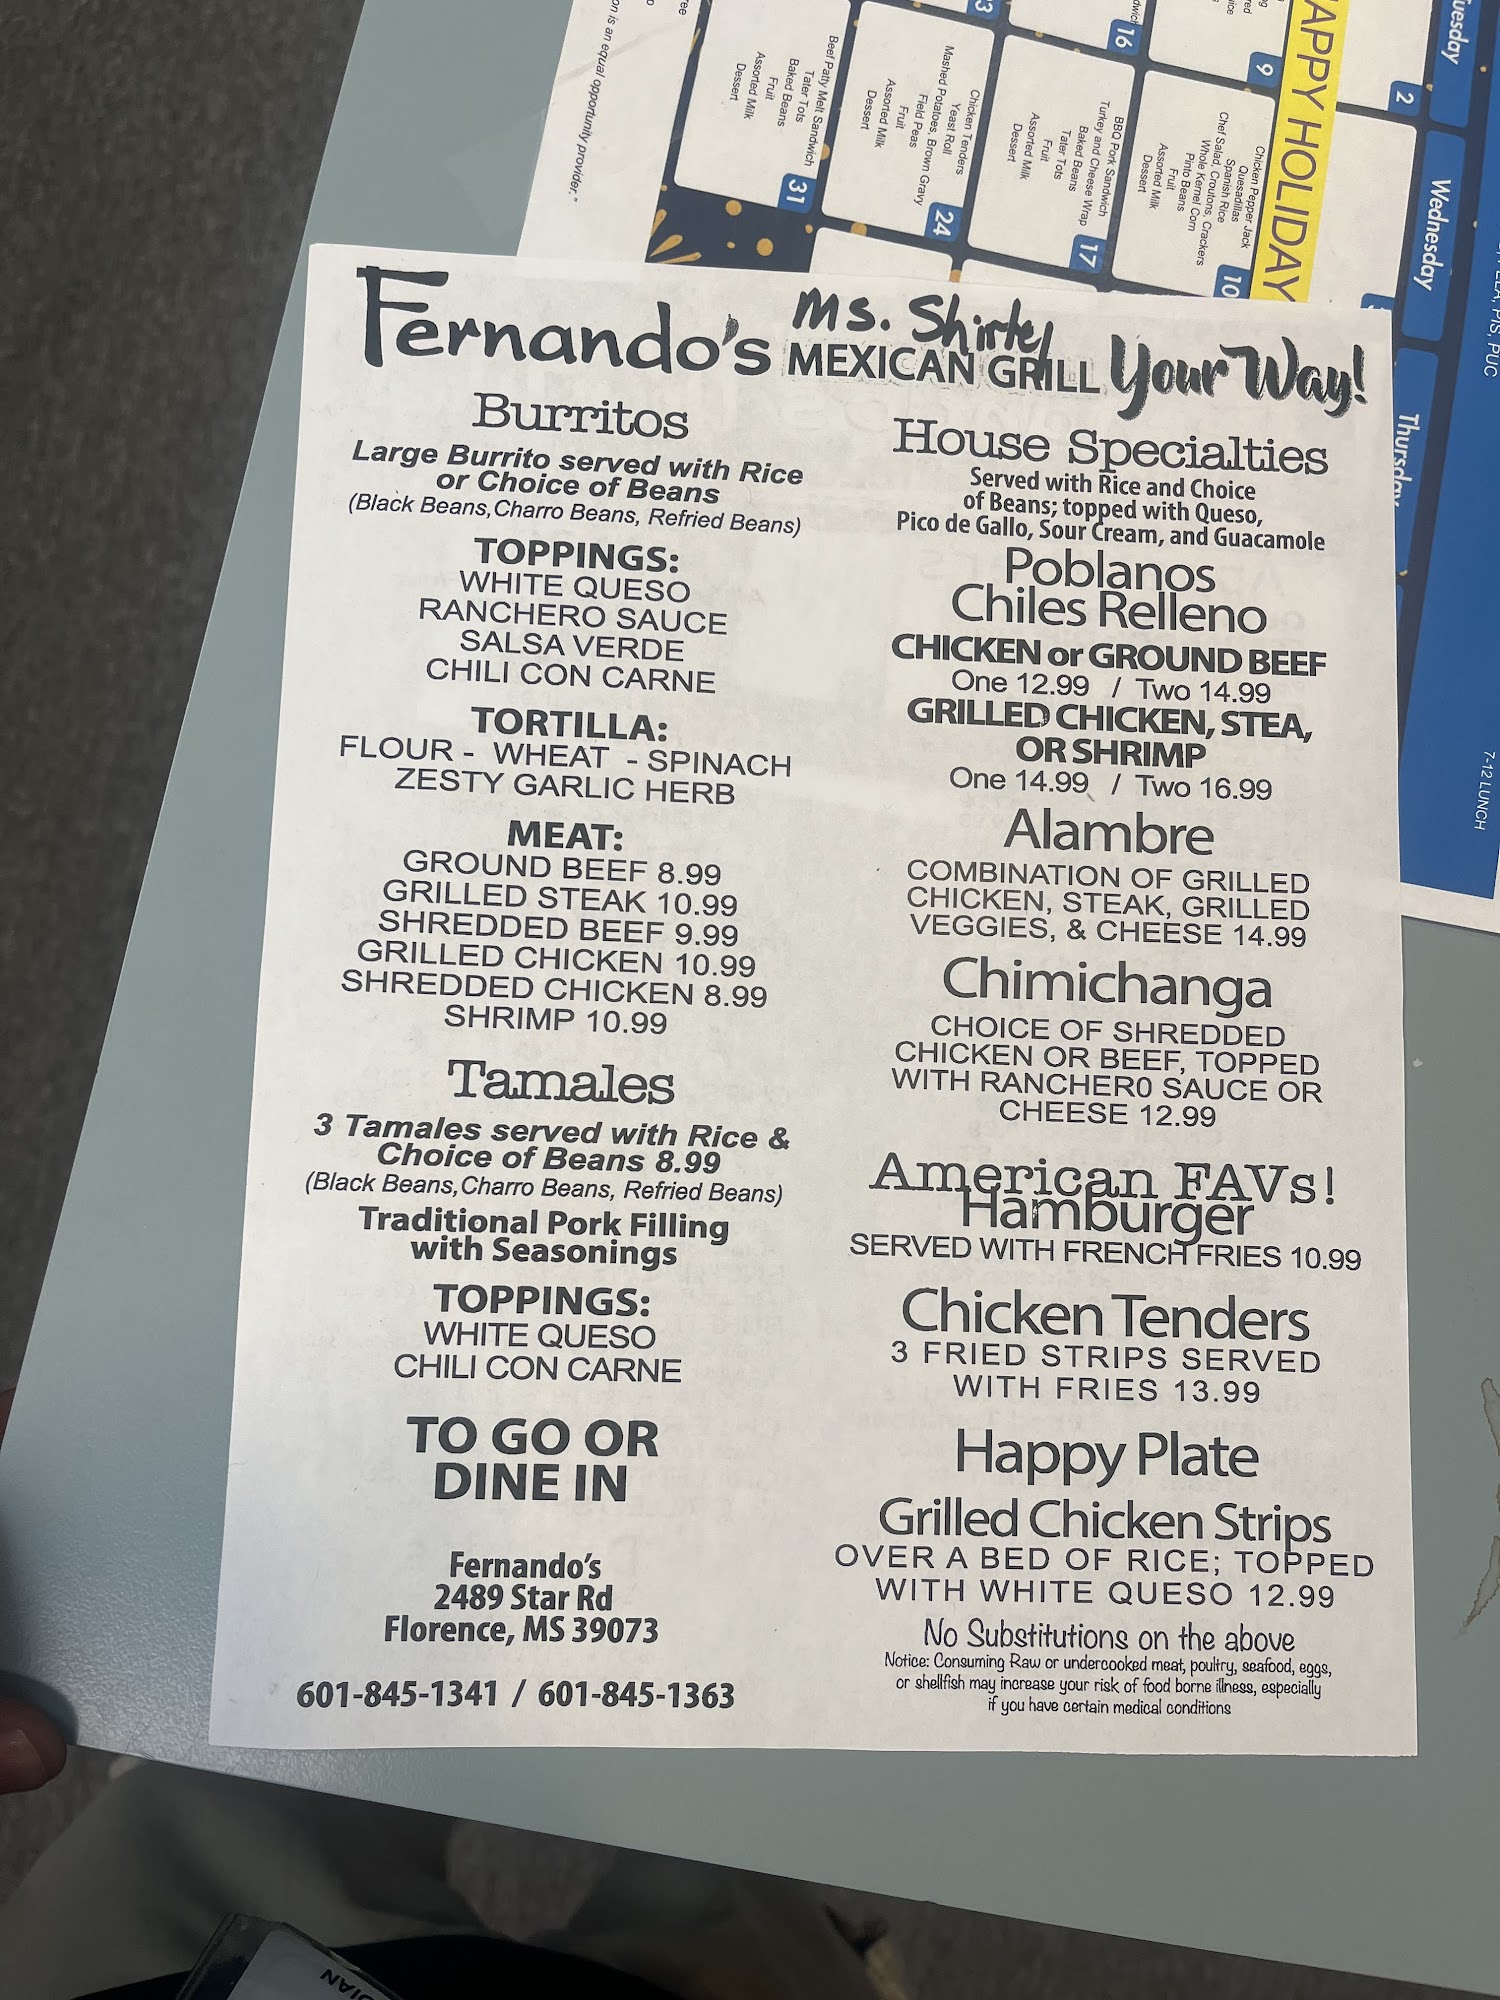 Fernando's MEXICAN GRILL Your Way!
Ms. Shirley
Burritos
Large Burrito served with Rice
or Choice of Beans
(Black Beans, Charro Beans, Refried Beans)
TOPPINGS:
WHITE QUESO
RANCHERO SAUCE
SALSA VERDE
CHILI CON CARNE
TORTILLA:
FLOUR - WHEAT - SPINACH
ZESTY GARLIC HERB
MEAT:
GROUND BEEF 8.99
GRILLED STEAK 10.99
SHREDDED BEEF 9.99
GRILLED CHICKEN 10.99
SHREDDED CHICKEN 8.99
SHRIMP 10.99
Tamales
3 Tamales served with Rice &
Choice of Beans 8.99
(Black Beans, Charro Beans, Refried Beans)
Traditional Pork Filling
with Seasonings
TOPPINGS:
WHITE QUESO
CHILI CON CARNE
TO GO OR
DINE IN
Fernando's
2489 Star Rd
Florence, MS 39073
601-845-1341 / 601-845-1363
House Specialties
Served with Rice and Choice
of Beans; topped with Queso,
Pico de Gallo, Sour Cream, and Guacamole
Poblanos
Chiles Relleno
CHICKEN or GROUND BEEF
One 12.99 / Two 14.99
GRILLED CHICKEN, STEA,
OR SHRIMP
One 14.99 / Two 16.99
Alambre
COMBINATION OF GRILLED
CHICKEN, STEAK, GRILLED
VEGGIES, & CHEESE 14.99
Chimichanga
CHOICE OF SHREDDED
CHICKEN OR BEEF, TOPPED
WITH RANCHER0 SAUCE OR
CHEESE 12.99
American FAVs!
Hamburger
SERVED WITH FRENCH FRIES 10.99
Chicken Tenders
3 FRIED STRIPS SERVED
WITH FRIES 13.99
Happy Plate
Grilled Chicken Strips
OVER A BED OF RICE; TOPPED
WITH WHITE QUESO 12.99
No Substitutions on the above
Notice: Consuming Raw or undercooked meat, poultry, seafood, eggs,
or shellfish may increase your risk of food borne illness, especially
if you have certain medical conditions
APPY HOLIDAY
Tuesday
2
9
16
Wednesday
10
Chicken Pepper Jack
Quesadillas
Spanish Rice
Chef Salad, Croutons, Crackers
Whole Kernel Corn
Pinto Beans
Fruit
Assorted Milk
Dessert
17
BBQ Pork Sandwich
Turkey and Cheese Wrap
Baked Beans
Tater Tots
Fruit
Assorted Milk
Dessert
24
Chicken Tenders
Yeast Roll
Mashed Potatoes, Brown Gravy
Field Peas
Fruit
Assorted Milk
Dessert
31
Beef Patty Melt Sandwich
Tater Tots
Baked Beans
Fruit
Assorted Milk
Dessert
Thursday
on is an equal opportunity provider."
7-12 LUNCH